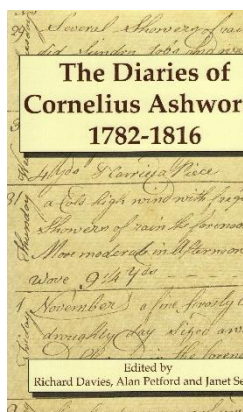 29 Several Showers of rai
did
The Diaries of
Cornelius Ashwor
1782-1816
4 Yds & Carry'd a Piece
31 a cold high wind with freq
Thursday
Showers of rain the forenoon
More moderate in Afternoon
wove 9 1/4 Yds
1 November a fine frosty
Friday
droughty day Sized a
the foren
Edited by
Richard Davies, Alan Petford and Janet Se